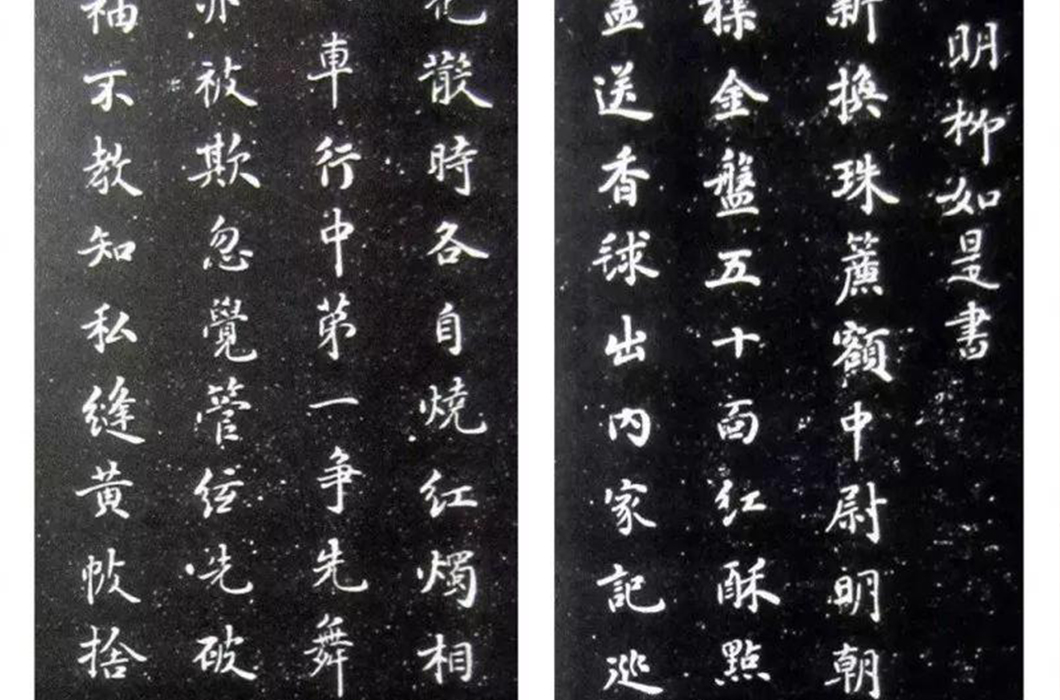 明柳如是書
新換珠簾額中尉明朝
樣金盤五十面紅酥點
盖送香毬出内家記巡
花散時各自燒紅燭相
車行中第一争先舞
亦被欺忽覺管絃先破
袖不教知私縫黄帔捨